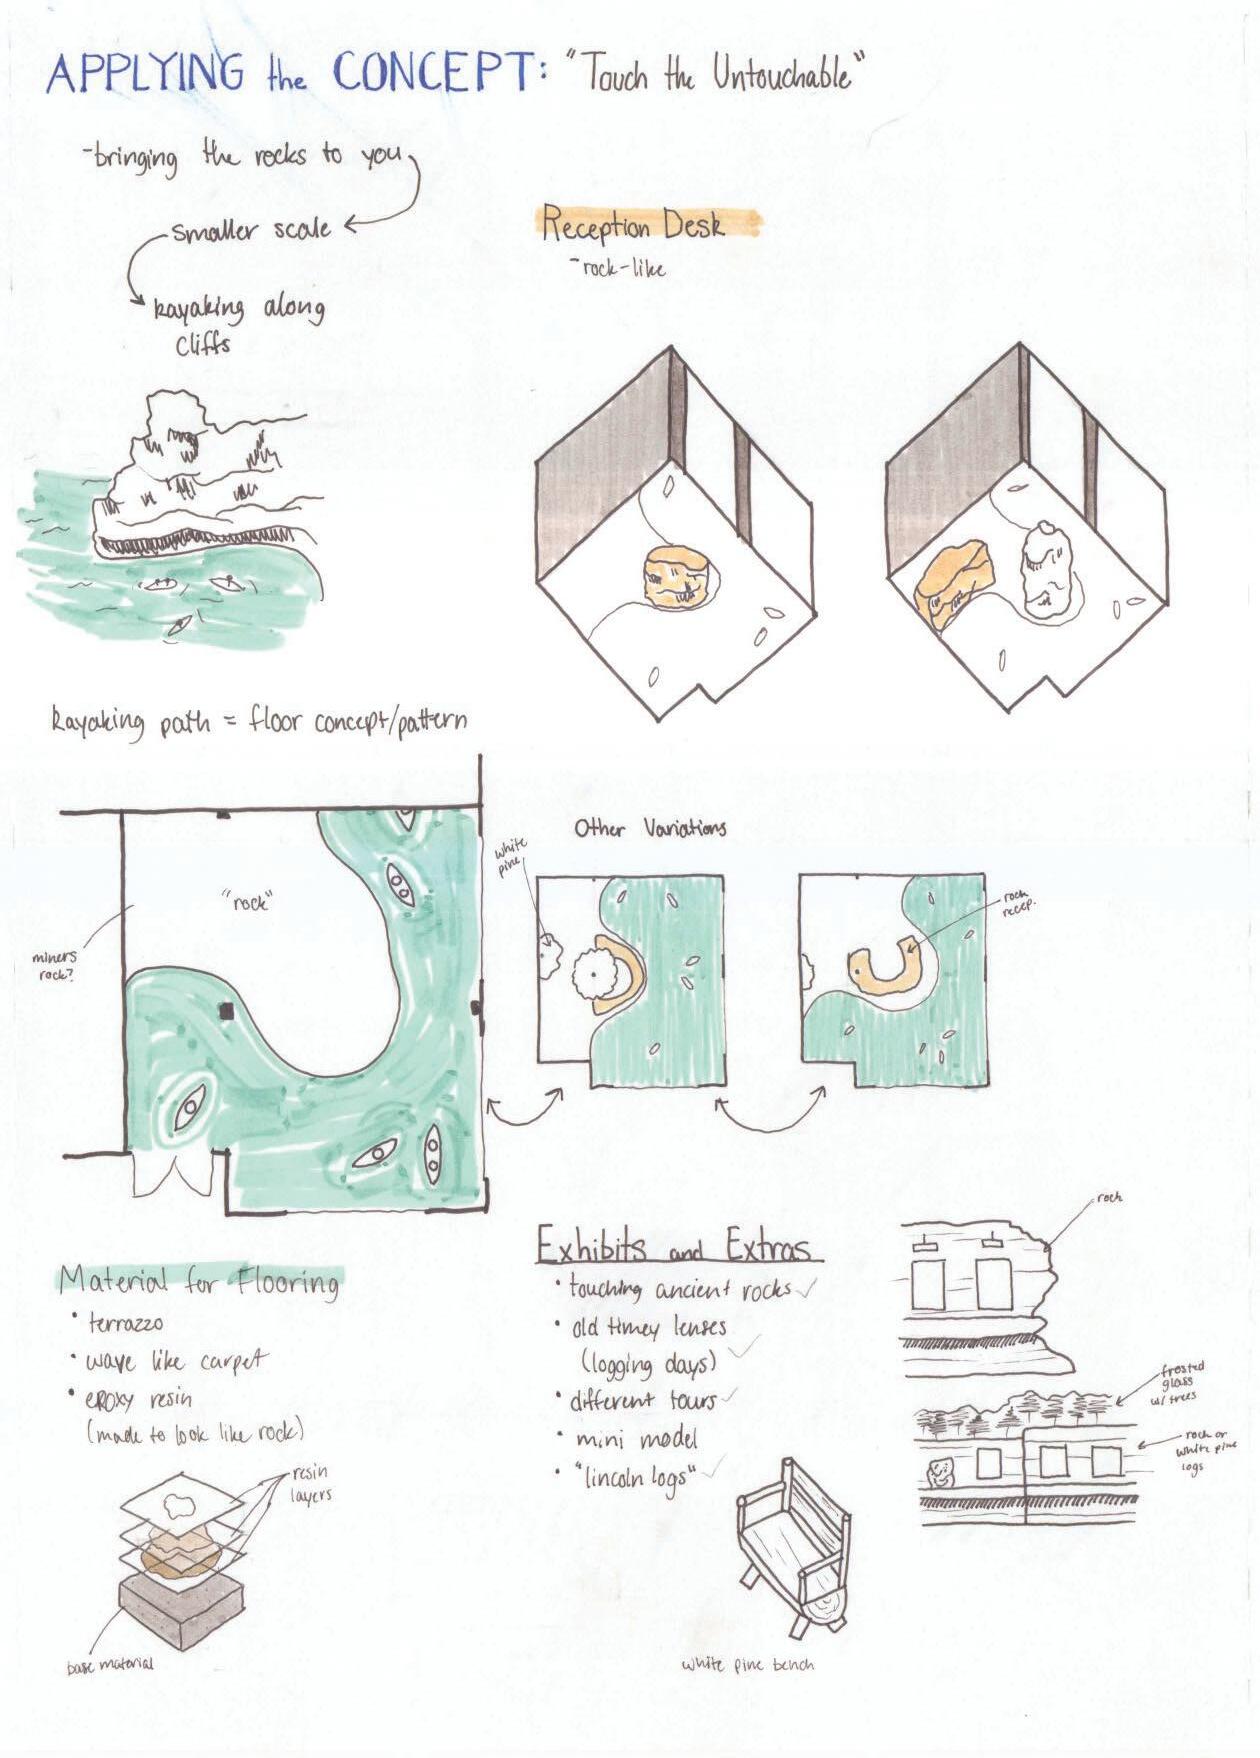 APPLYING the CONCEPT: "Touch the Untouchable"
-bringing the rocks to you
smaller scale
kayaking along
cliffs
Reception Desk
-rock-like
kayaking path = floor concept/pattern
"rock"
miners
rock?
Other Variations
white
pine
rock
recep.
Material for Flooring
• terrazzo
• wave like carpet
• epoxy resin
(made to look like rock)
resin
layers
base material
Exhibits and Extras
• touching ancient rocks ✓
• old timey lenses
(logging days) ✓
• different tours ✓
• mini model
• "lincoln logs" ✓
white pine bench
rock
frosted
glass
w/ trees
rock or
white pine
logs